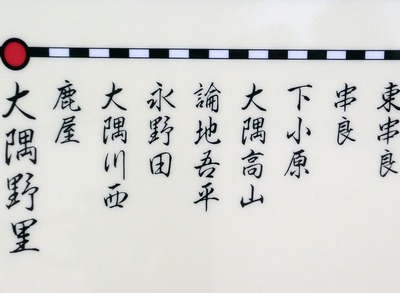 東串良
串良
下小原
大隅高山
論地吾平
永野田
大隅川西
鹿屋
大隅野里